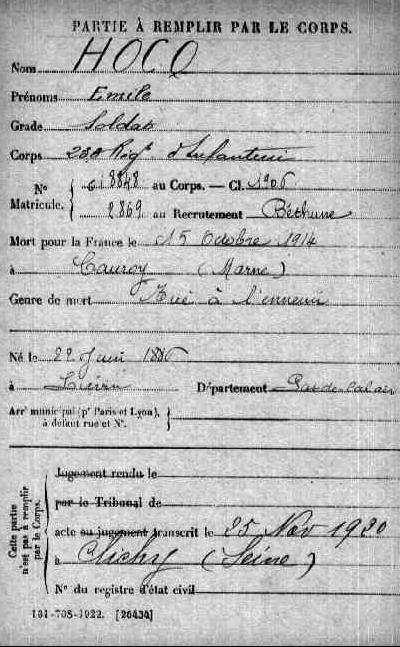 PARTIE À REMPLIR PAR LE CORPS.
Nom HOCQ
Prénoms Emile
Grade Soldat
Corps 280 Rég^t d'Infanterie
N° Matricule. 8848 au Corps. — Cl. 1906
2869 au Recrutement Béthune
Mort pour la France le 15 Octobre 1914
à Cauroy (Marne)
Genre de mort Tué à l'ennemi
Né le 22 Juin 1886
à Liévin Département Pas de Calais
Arr^t municipal (p^r Paris et Lyon), à défaut rue et N°.
Cette partie n'est pas à remplir par le Corps.
Jugement rendu le
par le Tribunal de
acte ou jugement transcrit le 25 Nov 1920
à Clichy (Seine)
N° du registre d'état civil
101-708-1922. [26434]